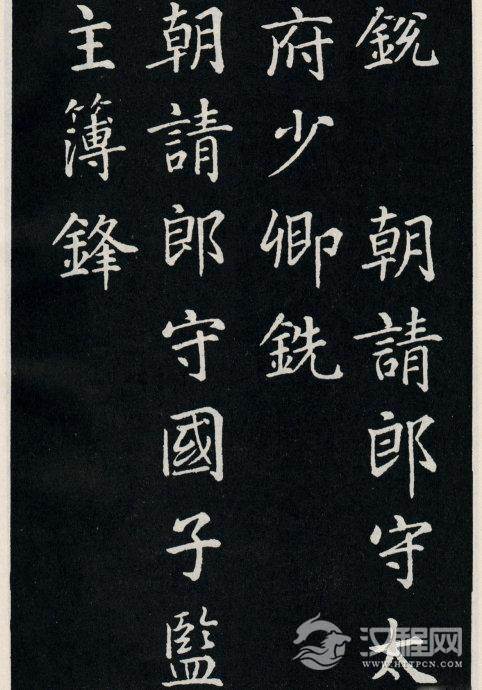 銳　朝請郎守太
府少卿銑
朝請郎守國子監
主簿鋒
汉程网
WWW.HTTPCN.COM